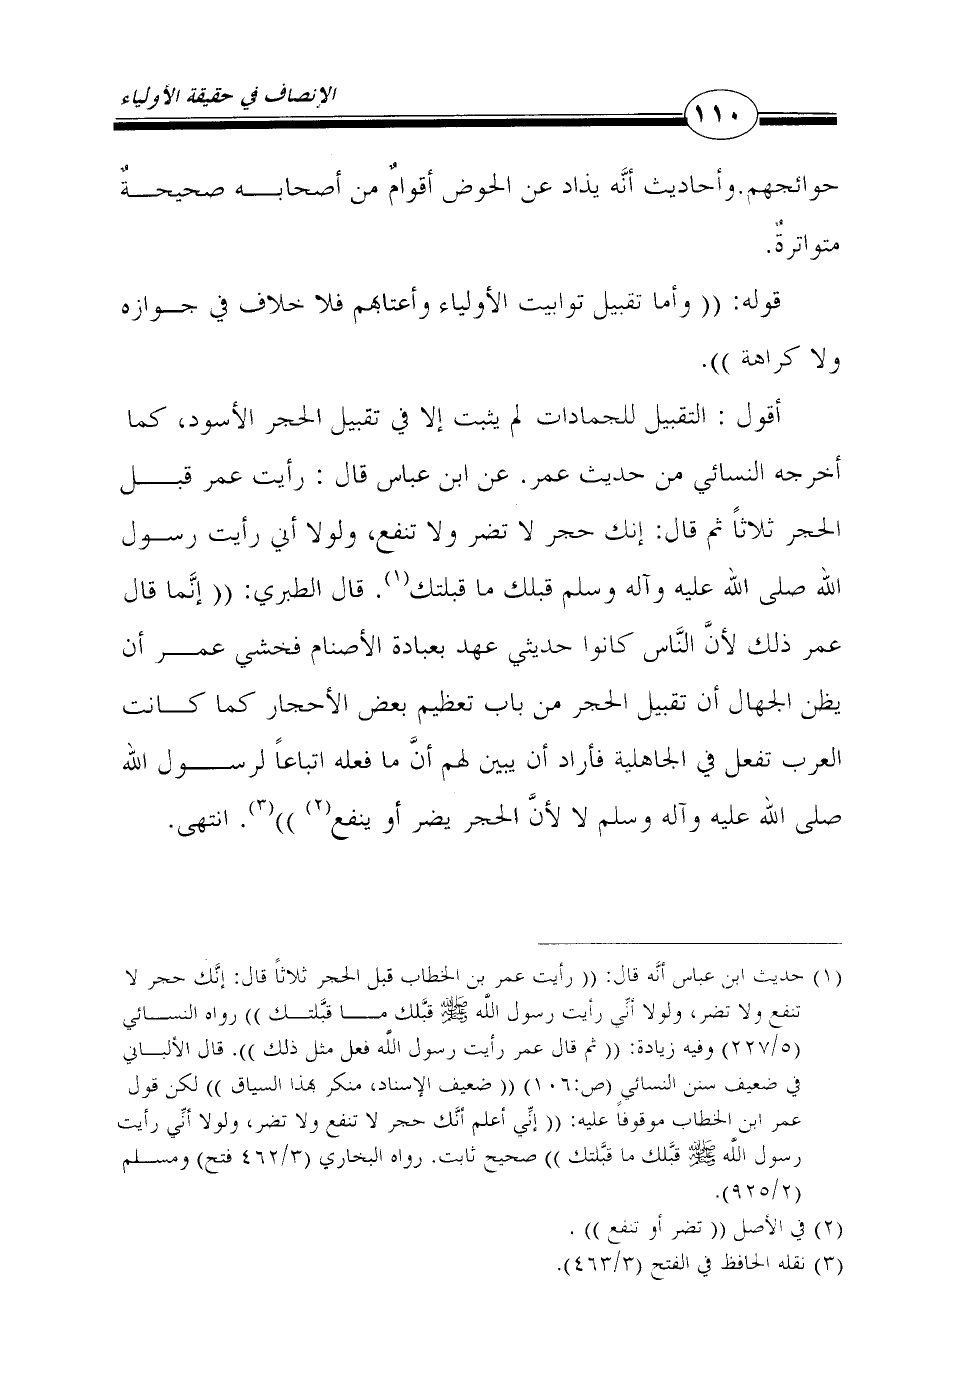 الإنصاف في حقيقة الأولياء
١١٠
حوائجهم.وأحاديث أنَّه يذاد عن الحوض أقوامٌ من أصحابـــه صحيحـــةٌ
متواترةٌ.
قوله: (( وأما تقبيل توابيت الأولياء وأعتابهم فلا خلاف في جـوازه
ولا كراهة )).
أقول : التقبيل للجمادات لم يثبت إلا في تقبيل الحجر الأسود، كما
أخرجه النسائي من حديث عمر. عن ابن عباس قال : رأيت عمر قبـــل
الحجر ثلاثاً ثم قال: إنك حجر لا تضر ولا تنفع، ولولا أني رأيت رسول
الله صلى الله عليه وآله وسلم قبلك ما قبلتك(١). قال الطبري: (( إنَّما قال
عمر ذلك لأنَّ النَّاس كانوا حديثي عهد بعبادة الأصنام فخشي عمـــر أن
يظن الجهال أن تقبيل الحجر من باب تعظيم بعض الأحجار كما كـــانت
العرب تفعل في الجاهلية فأراد أن يبين لهم أنَّ ما فعله اتباعاً لرســـول الله
صلى الله عليه وآله وسلم لا لأنَّ الحجر يضر أو ينفع(٢) ))(٣). انتهى.
(١) حديث ابن عباس أنَّه قال: (( رأيت عمر بن الخطاب قبل الحجر ثلاثاً قال: إنَّك حجر لا
تنفع ولا تضر، ولولا أنِّي رأيت رسول الله ﷺ قبَّلك مـــا قبَّلتـــك )) رواه النســـائي
(٢٢٧/٥) وفيه زيادة: (( ثم قال عمر رأيت رسول الله فعل مثل ذلك )). قال الألبـــاني
في ضعيف سنن النسائي (ص:١٠٦) (( ضعيف الإسناد، منكر بهذا السياق )) لكن قول
عمر ابن الخطاب موقوفاً عليه: (( إنِّي أعلم أنَّك حجر لا تنفع ولا تضر، ولولا أنِّي رأيت
رسول الله ﷺ قبَّلك ما قبَّلتك )) صحيح ثابت. رواه البخاري (٤٦٢/٣ فتح) ومســـلم
(٩٢٥/٢).
(٢) في الأصل (( تضر أو تنفع )) .
(٣) نقله الحافظ في الفتح (٤٦٣/٣).